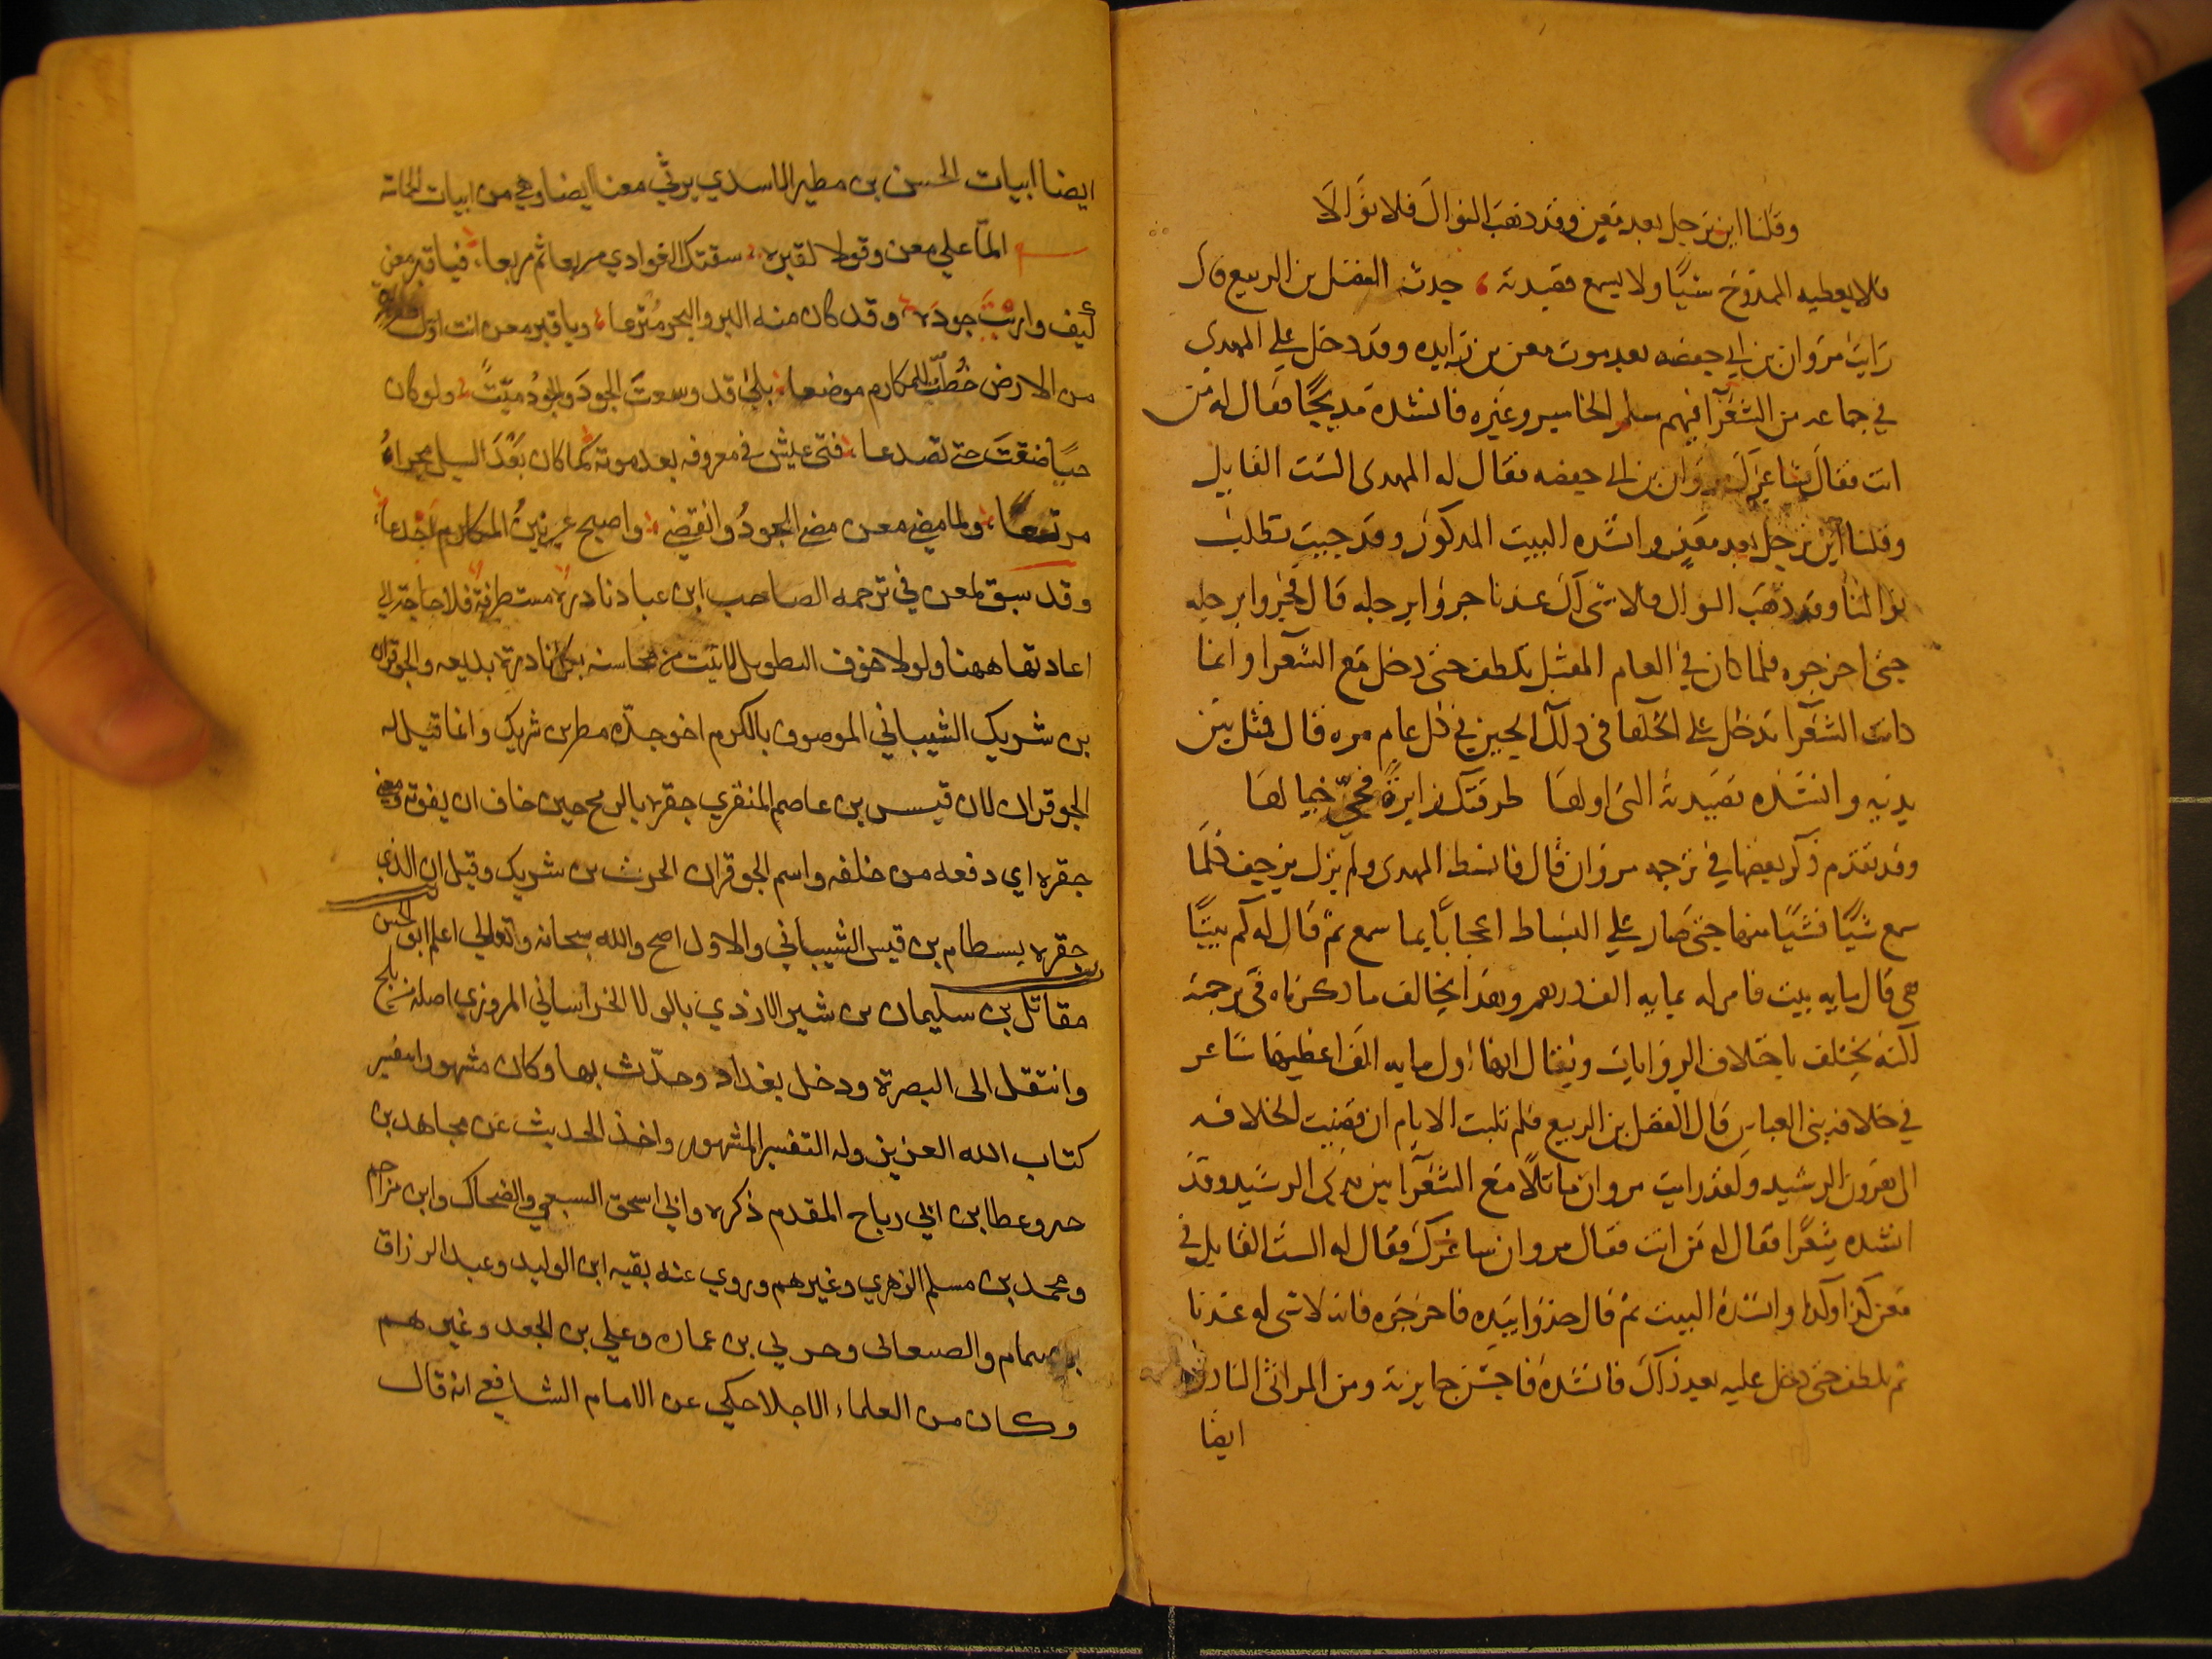 وقلنا اين نرحل بعد معن وقد ذهب النوال فلا نوالا
فلا يعطيه الممدوح شيًا ولا يسمع قصيدته حدث الفضل بن الربيع قال
رايت مروان بن ابي حفصه بعد موت معن بن زايده وقد دخل على المهدي
في جماعه من الشعرآ فيهم سلم الخاسر وغيره فانشده مديحًا فقال له من
انت فقال شاعرك مروان بن ابي حفصه فقال له المهدى الست القايل
وقلنا اين نرحل بعد معن وانشده البيت المذكور وقد جيت تطلب
نوالنا وقد ذهب النوال فلا شى لك عندنا جروا برجله قال فجروا برجله
حتى اخرجوه فلما كان في العام المقبل تلطف حتى دخل مع الشعرآ وانما
كانت الشعرآ تدخل على الخلفا في ذلك الحين في كل عام مره قال فمثل بين
يديه وانشده قصيدته التى اولها طرقتك زايرةً فحيّ خيالها
وقد تقدم ذكر بعضها في ترجمه مروان قال فانصت المهدى ولم يزل يزحف كلما
سمع شيًا فشيًا منها حتى صار على البساط اعجابًا بما سمع ثم قال له كم بيتًا
هي قال مايه بيت فامر له بمايه الف درهم وهذا يخالف ما ذكرناه في ترجمته
لكنه يختلف باختلاف الروايات ويقال انها اول مايه الف اعطيها شاعر
في خلافه بنى العباس قال الفضل بن الربيع فلم تلبث الايام ان قضيت الخلافه
الى هرون الرشيد ولقد رايت مروان ماثلًا مع الشعرآ بين يدى الرشيد وقد
انشده شعرًا فقال له من انت فقال مروان شاعرك فقال له الست القايل في
معن كذا وكذا وانشده البيت ثم قال خذوا بيده فاخرجوه فانه لا شى له عندنا
ثم تلطف حتى دخل عليه بعد ذاك فانشده فاحسن جايزته ومن المراثى النادره
ايضا
ايضا ابيات الحسن بن مطير الاسدي يرثي معنا ايضا وهي من ابيات الحماسه
المّا علي معن وقولا لقبره سقتك الغوادي مربعا ثم مربعا فيا قبر معن
كيف واريتَ جودَه وقد كان منه البر والبحر مُترعا ويا قبر معن انت اول
من الارض خُطّت للمكارم موضعا بلي قد وسعتَ الجودَ والجودُ ميّتً ولو كان
حيًا ضقتَ حتى تصدعا فتى عيش في معروفه بعد موته كما كان بَعْدَ السيل مجراهُ
مرتعا ولما مضي معن مضي الجودُ وانقضي واصبح عرنينُ المكارم اجدعا
وقد سبق لمعن في ترجمه الصاحب ابن عباد نادرة مستطرفة فلا حاجة الي
اعادتها ههنا ولولا خوف التطويل لاتيت من محاسنه بكل نادرة بديعه والجوفزان
بن شريك الشيباني الموصوف بالكرم اخو جدّه مطر بن شريك وانما قيل له
الجوفزان لان قيس بن عاصم المنقري جقره بالرمح حين خاف ان يفوته ومعنى
جقره اي دفعه من خلفه واسم الجوقران الحرث بن شريك وقيل ان الذي
جقره بسطام بن قيس الشيباني والاول اصح والله سبحانه وتعالي اعلم ابو الحسن
مقاتل بن سليمان بن شير الازدي بالولا الخراساني المروزي اصله من بلخ
وانتقل الى البصرة ودخل بغداد وحدّث بها وكان مشهورا بتفسير
كتاب الله العزيز وله التفسير المشهور واخذ الحديث عن مجاهد بن
حبر وعطا بن ابي رباح المقدم ذكره وابي اسحق السبعي والضحاك وابن مزاحم
ومحمد بن مسلم الزهري وغيرهم وروي عنه بقيه ابن الوليد وعبد الرزاق
بن همام والصنعانى وحربي بن عماره وعلي بن الجعد وغيرهم
وكان من العلماء الاجلا حكي عن الامام الشافعي انه قال